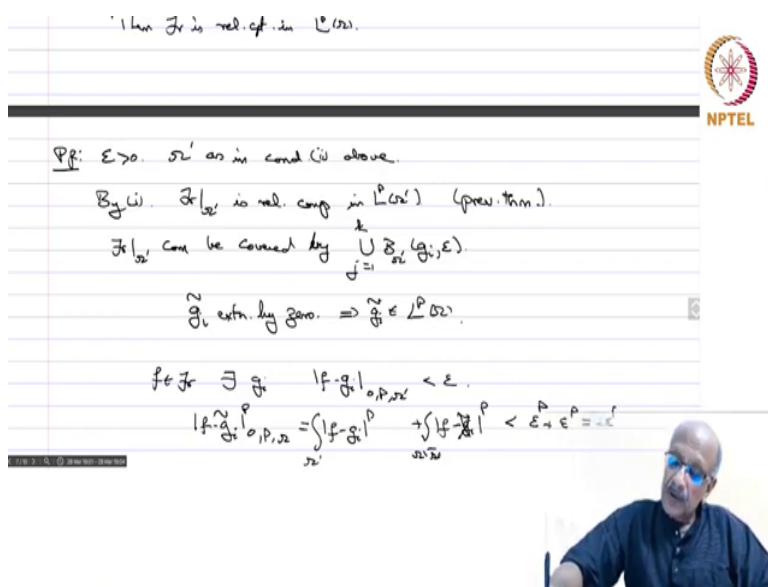 Then ℱ is rel. cpt. in L^p(Ω).
NPTEL
Pf: ε>0. Ω' as in cond (ii) above.
By (i). ℱ|_Ω' is rel. comp in L^p(Ω') (prev. thm.).
ℱ|_Ω' can be covered by ⋃_{j=1}^{k} B_Ω'(g_i, ε).
g̃_i extn. by zero. ⇒ g̃_i ∈ L^p(Ω).
f∈ℱ ∃ g_i |f-g_i|_{0,p,Ω'} < ε.
|f-g̃_i|^p_{0,p,Ω} = ∫_Ω' |f-g_i|^p + ∫_{Ω\Ω'} |f-g̃_i|^p < ε^p + ε^p =